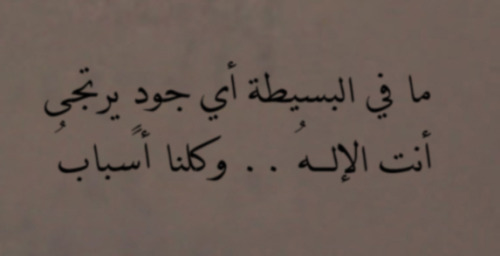 ما في البسيطة أي جودٍ يرتجى
أنت الإلــهُ . . وكلنا أسبابُ